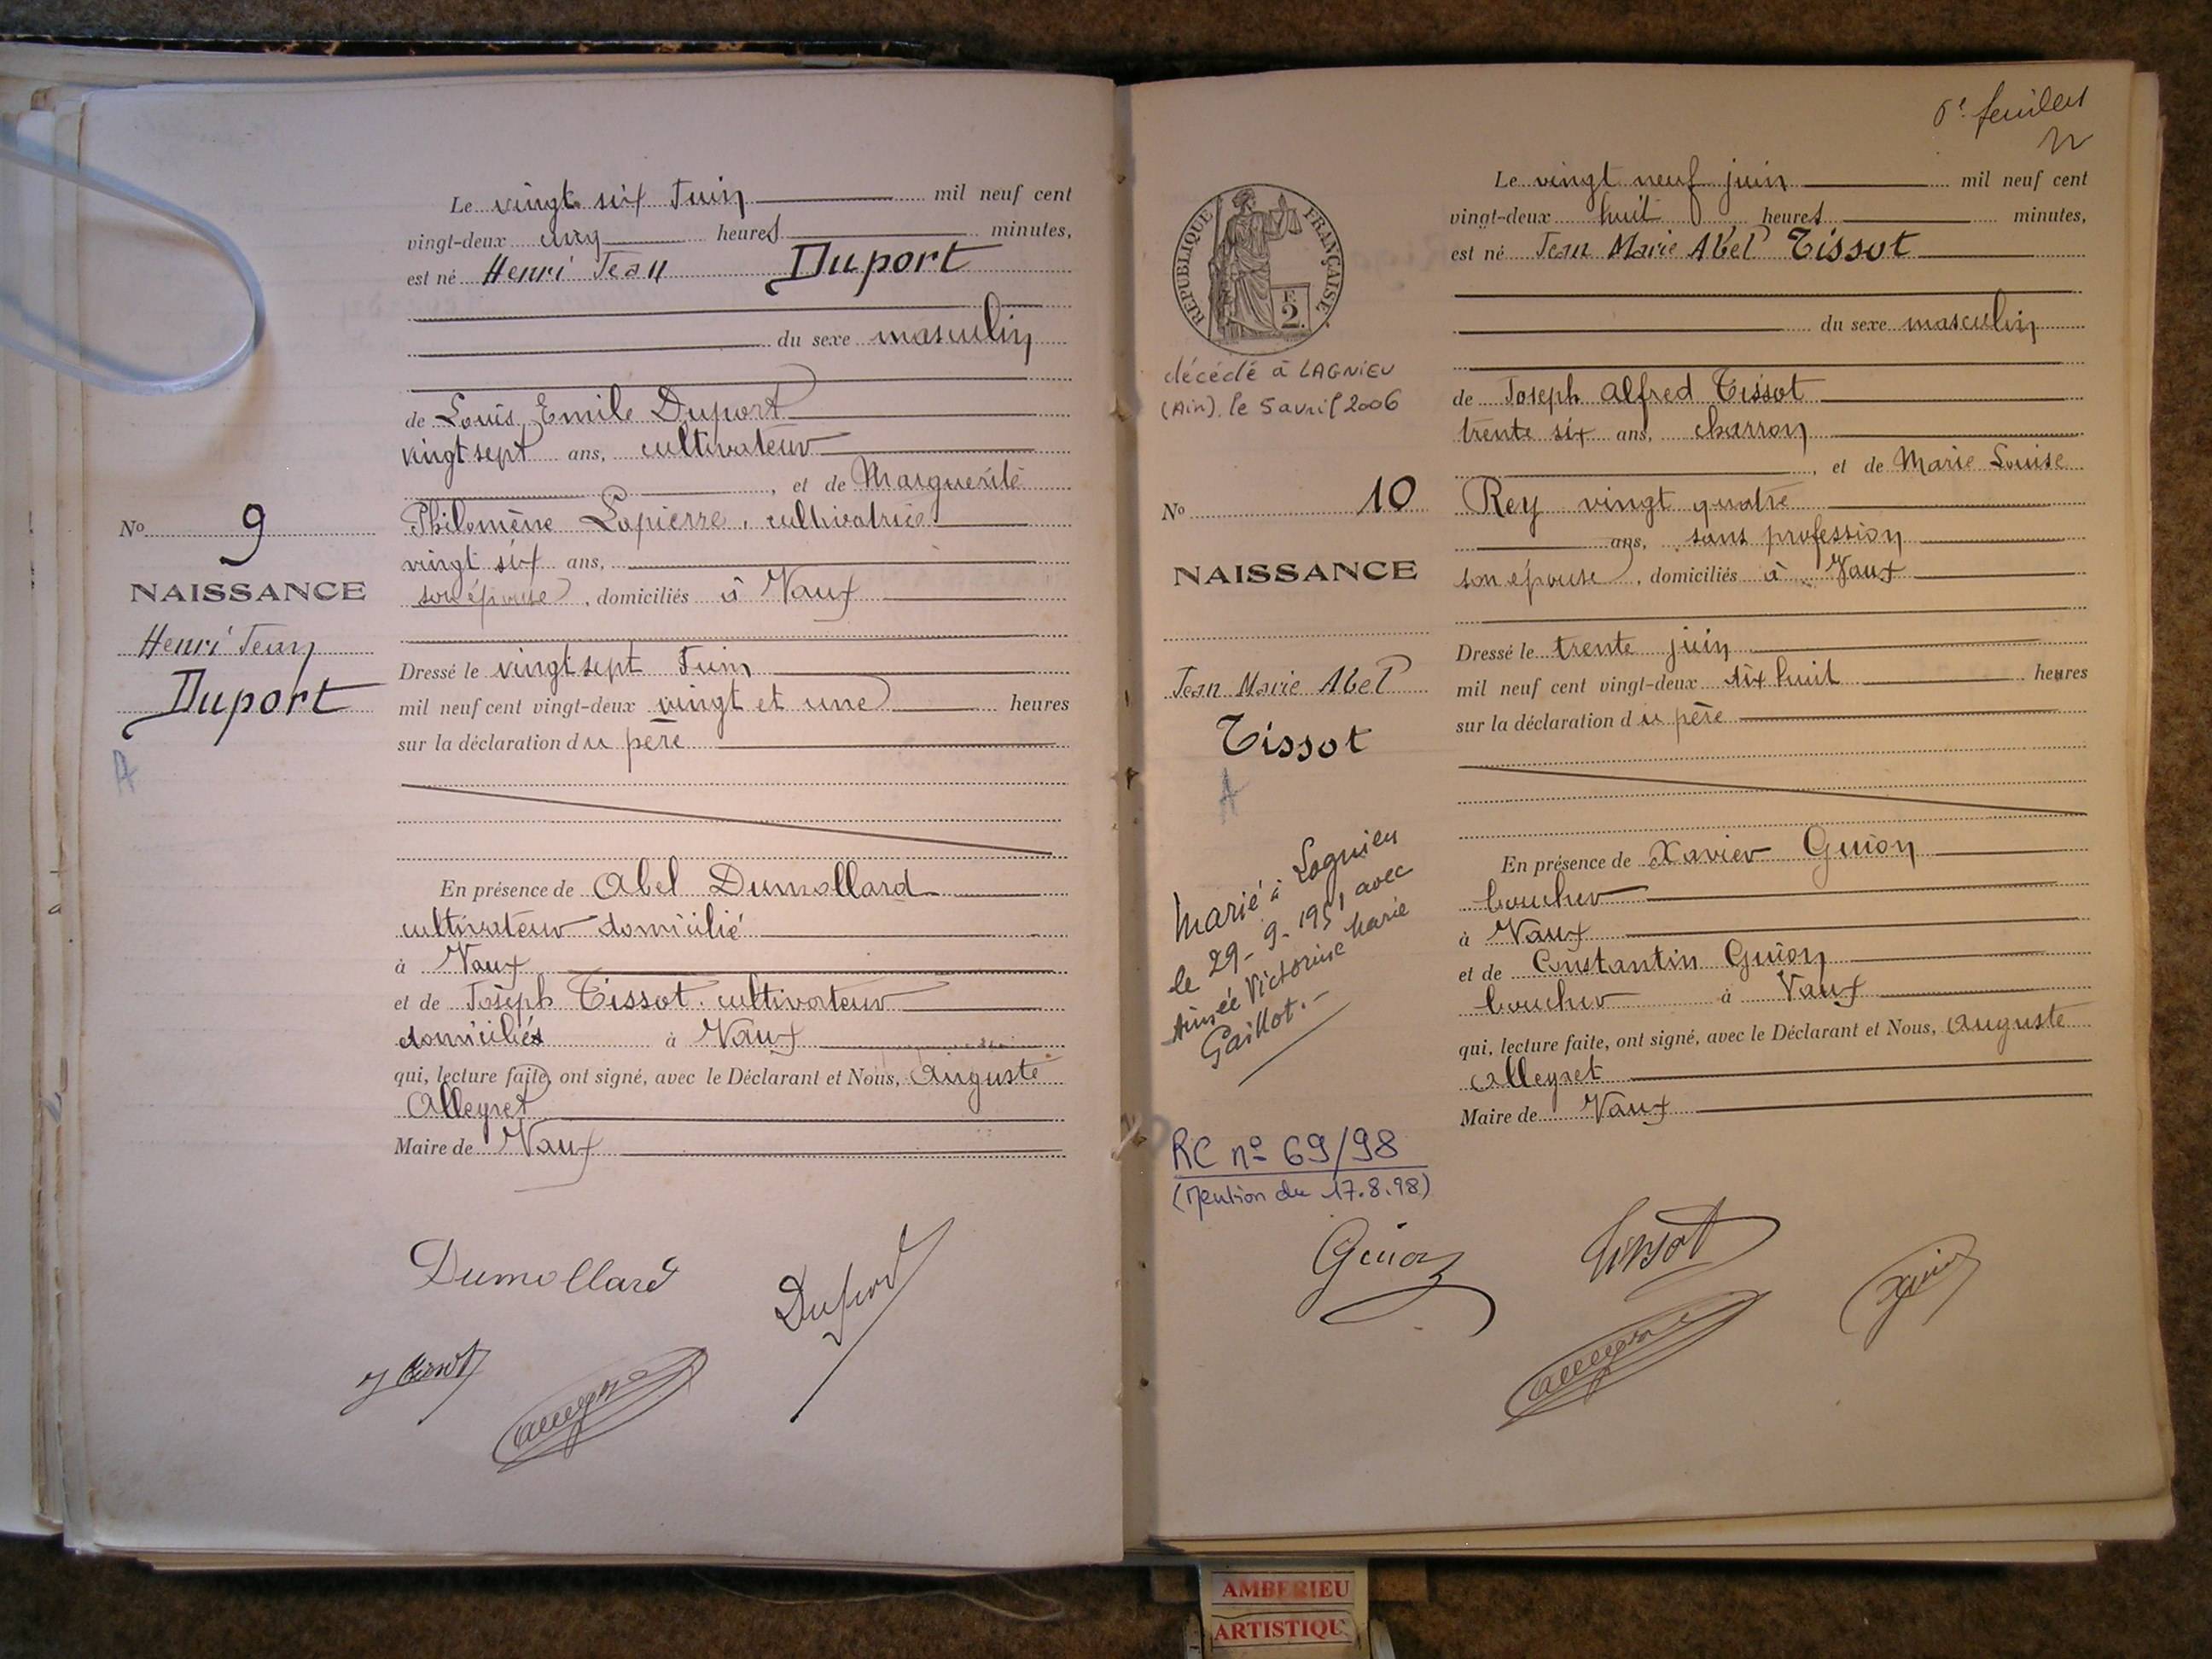 Le vingt six Juin mil neuf cent
vingt-deux cinq heures minutes,
est né Henri Jean Duport
du sexe masculin
de Louis Emile Duport
vingt sept ans, cultivateur
, et de Marguerite
Philomène Lapierre, cultivatrice
vingt six ans,
son épouse, domiciliés à Vaux
Dressé le vingt sept Juin
mil neuf cent vingt-deux vingt et une heures
sur la déclaration du père
En présence de Abel Dumollard
cultivateur domicilié
à Vaux
et de Joseph Tissot cultivateur
domiciliés à Vaux
qui, lecture faite, ont signé, avec le Déclarant et Nous, Auguste
Alleyret
Maire de Vaux
No 9
NAISSANCE
Henri Jean
Duport
A
Dumollard
Duport
J Tissot
Alleyret
6e feuillet
REPUBLIQUE FRANÇAISE
F.
2.
décédé à LAGNIEU
(Ain) le 5 avril 2006
No 10
NAISSANCE
Jean Marie Abel
Tissot
A
Marié à Lagnieu
le 29-9-1951 avec
Aimée Victorine Marie
Gaillot.-
RC no 69/98
(Mention du 17.8.98)
Le vingt neuf juin mil neuf cent
vingt-deux huit heures minutes,
est né Jean Marie Abel Tissot
du sexe masculin
de Joseph Alfred Tissot
trente six ans, charron
, et de Marie Louise
Rey vingt quatre
ans, sans profession
son épouse, domiciliés à Vaux
Dressé le trente juin
mil neuf cent vingt-deux dix huit heures
sur la déclaration du père
En présence de Xavier Guion
boucher
à Vaux
et de Constantin Guion
boucher à Vaux
qui, lecture faite, ont signé, avec le Déclarant et Nous, Auguste
Alleyret
Maire de Vaux
Guion
Tissot
Alleyret
AMBERIEU
ARTISTIQU